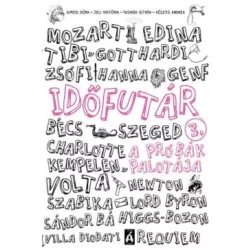 GIMESI DÓRA — JELI VIKTÓRIA — TASNÁDI ISTVÁN — VÉSZITS ANDREA
MOZART EDINA
TIBI GOTTHARDI
ZSÓFI HANNA GENF
IDŐFUTÁR
BÉCS SZEGED 3.
CHARLOTTE A PRÓBÁK
KEMPELEN PALOTÁJA
VOLTA NEWTON
SZABIKA LORD BYRON
SÁNDOR BÁ HIGGS-BOZON
VILLA DIODATI Á REQUIEM